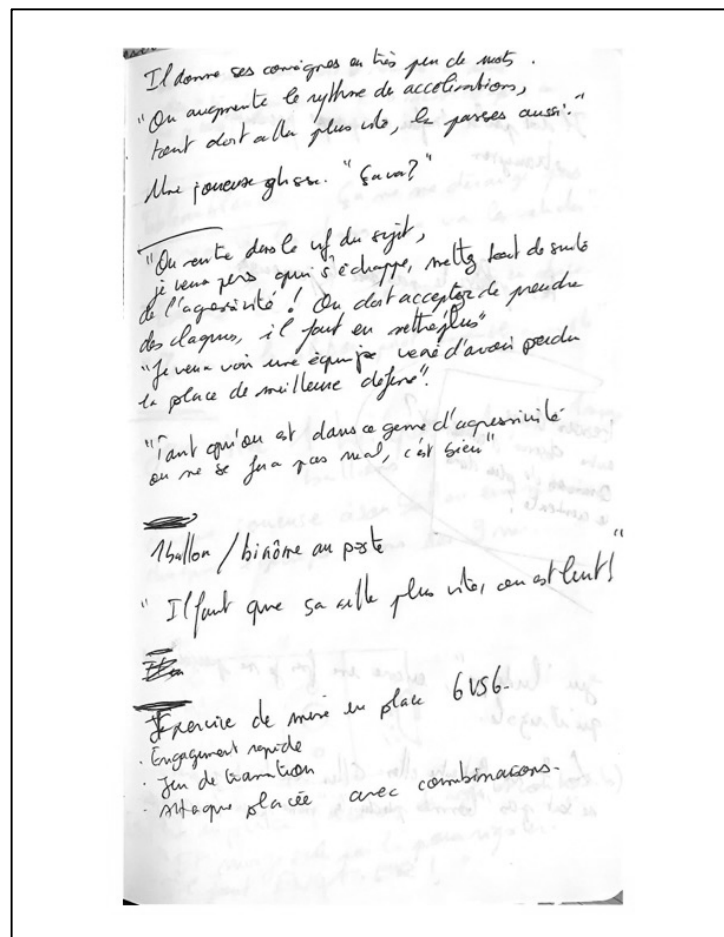 Il donne ses consignes en très peu de mots.
"On augmente le rythme des accélérations,
tout doit aller plus vite, les passes aussi."
Une joueuse glisse. "Ça va?"
"On rentre dans le vif du sujet,
je veux pas qu'on s'échappe, mettez tout de suite
de l'agressivité! On doit accepter de prendre
des claques, il faut en mettre plus"
"Je veux voir une équipe vexé d'avoir perdu
la place de meilleure défense".
"Tant qu'on est dans ce genre d'agressivité
on ne se fera pas mal, c'est bien"
1 ballon / binôme au poste
"Il faut que sa aille plus vite, on est lent!"
Exercice de mise en place 6 VS 6.
. Engagement rapide
. Jeu de transition
. Attaque placée avec combinaisons.